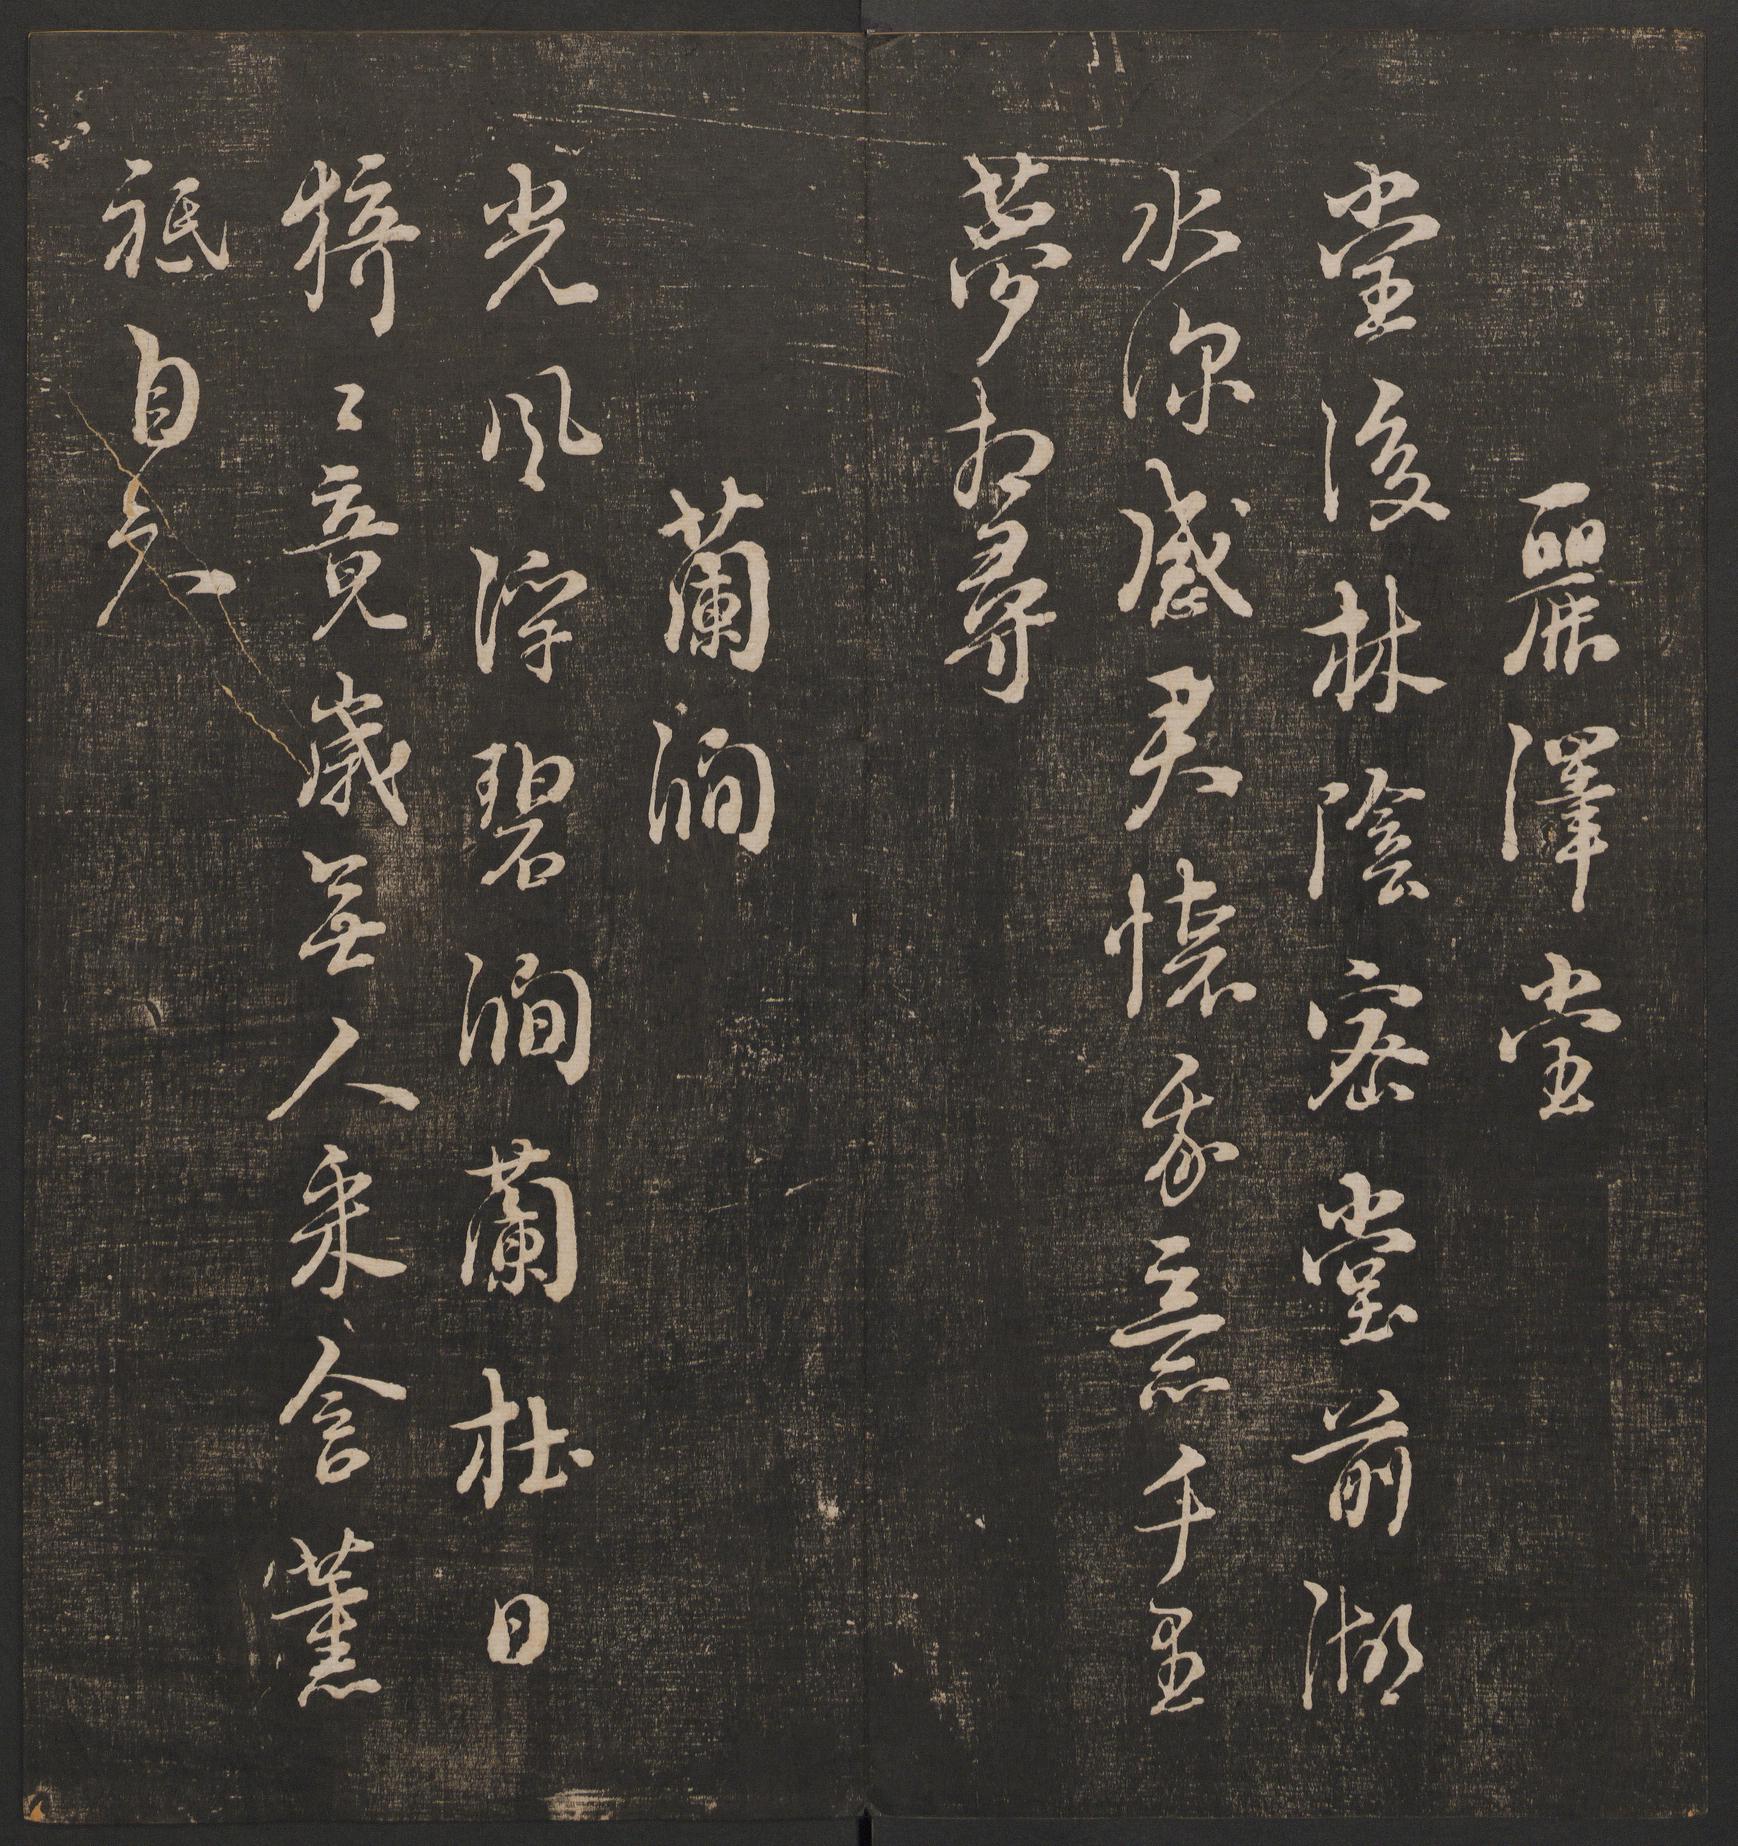 麗澤堂
堂後林陰密堂前湖
水深感君懷我意千里
夢相尋
蘭澗
光風浮碧澗蘭杜日
猗〻竟歲無人采含薰
祇自知